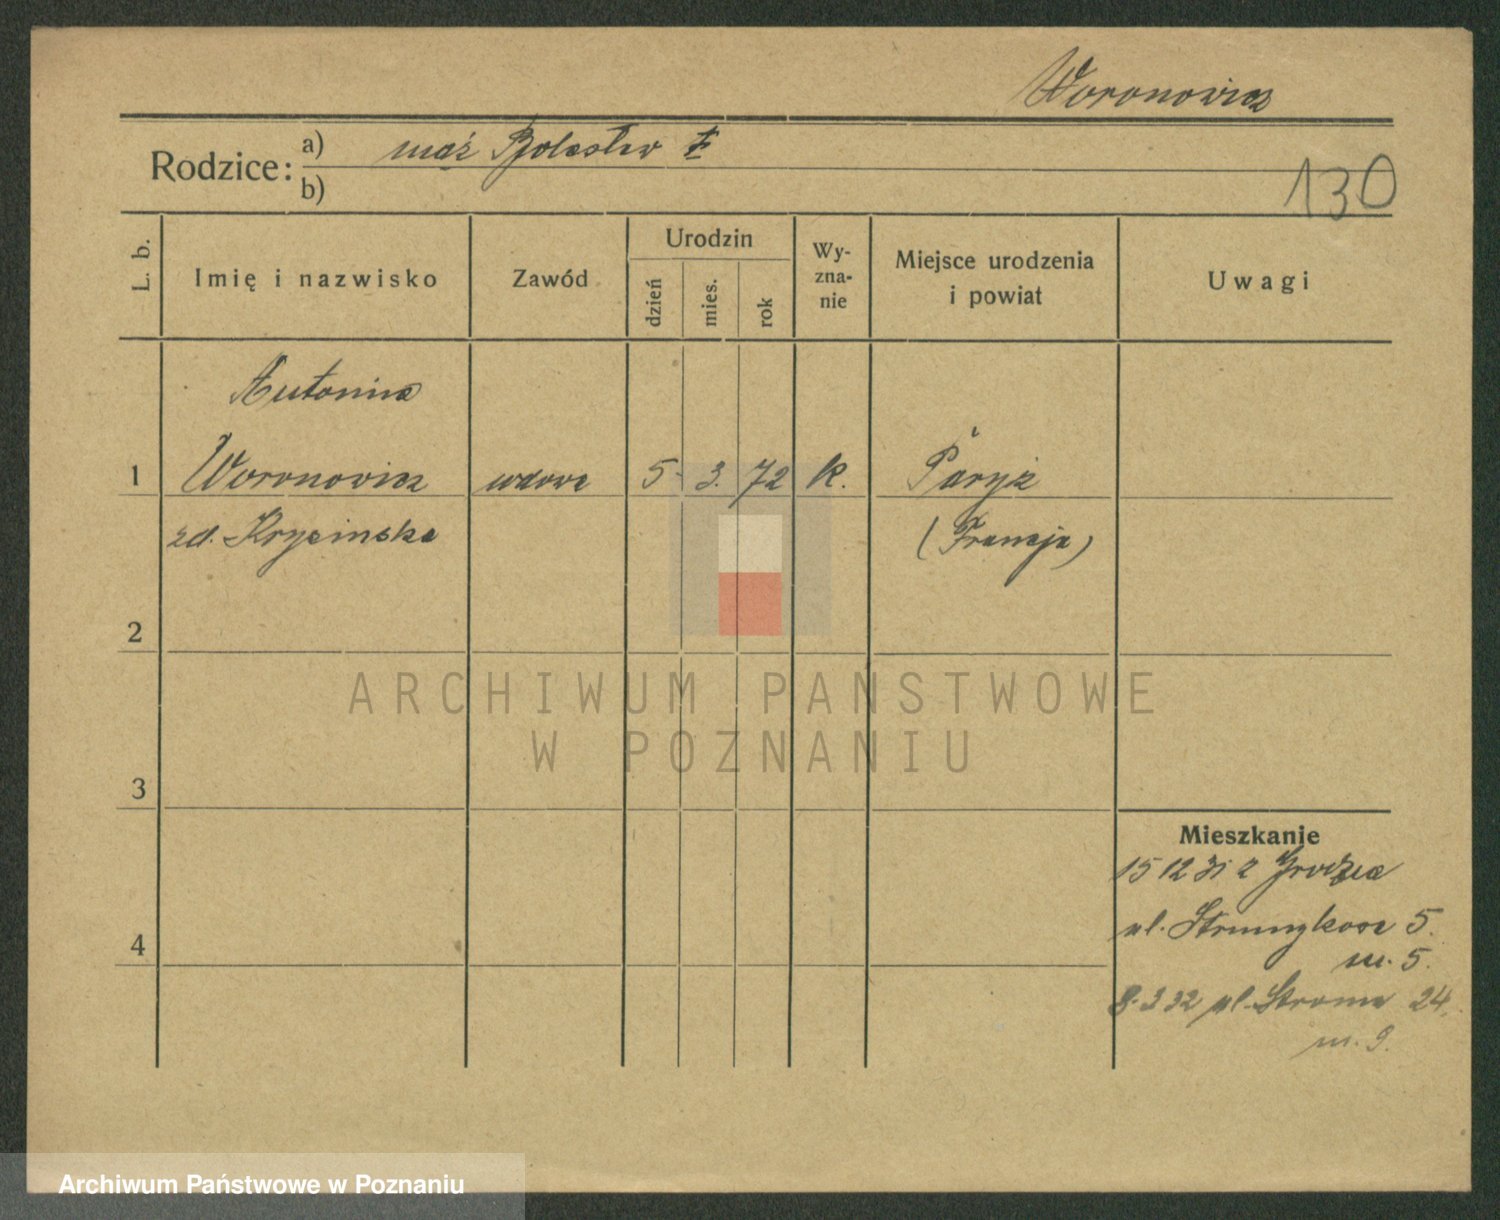 Woronowicz
Rodzice: a) mąż Bolesław
b)
130
L. b.
Imię i nazwisko
Zawód
Urodzin
dzień
mies.
rok
Wy-
zna-
nie
Miejsce urodzenia
i powiat
Uwagi
Antonina
1 Woronowicz wdowa 5 3. 72 k. Paryż
zd. Krycinska (Francja)
2
3
4
ARCHIWUM PAŃSTWOWE
W POZNANIU
Mieszkanie
15 12 31 z
ul. 5.
m. 5.
8.3 32 ul. Stroma 24.
m. 9.
Archiwum Państwowe w Poznaniu